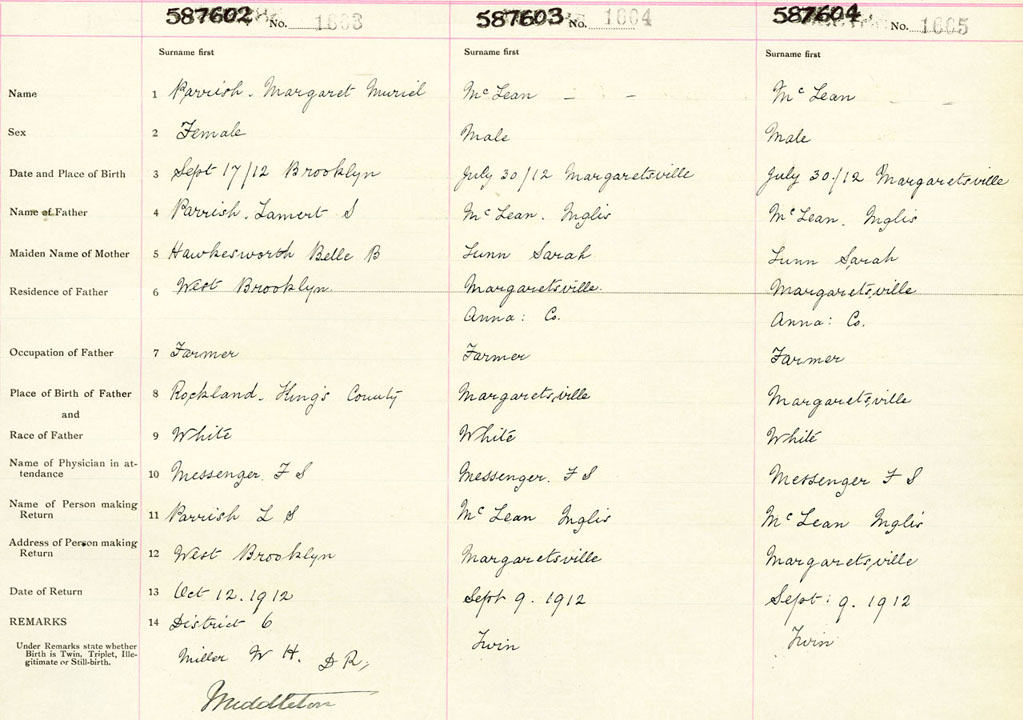 587602 No. 1603 587603 No. 1604 587604 No. 1605
Surname first Surname first Surname first
Name 1 Parrish. Margaret Muriel Mc Lean — — Mc Lean
Sex 2 Female Male Male
Date and Place of Birth 3 Sept 17/12 Brooklyn July 30/12 Margaretsville July 30/12 Margaretsville
Name of Father 4 Parrish. Lamert S Mc Lean. Inglis Mc Lean. Inglis
Maiden Name of Mother 5 Hawkesworth Belle B Lunn Sarah Lunn Sarah
Residence of Father 6 West Brooklyn. Margaretsville. Margaretsville
Anna: Co. Anna: Co.
Occupation of Father 7 Farmer Farmer Farmer
Place of Birth of Father 8 Rockland. King's County Margaretsville Margaretsville
and
Race of Father 9 White White White
Name of Physician in at-
tendance 10 Messenger. F S Messenger. F S Messenger F S
Name of Person making
Return 11 Parrish L S Mc Lean Inglis Mc Lean Inglis
Address of Person making
Return 12 West Brooklyn Margaretsville Margaretsville
Date of Return 13 Oct 12. 1912 Sept 9. 1912 Sept: 9. 1912
REMARKS 14 District 6
Under Remarks state whether
Birth is Twin, Triplet, Ille-
gitimate or Still-birth. Miller W H. D R, Twin Twin
Middleton